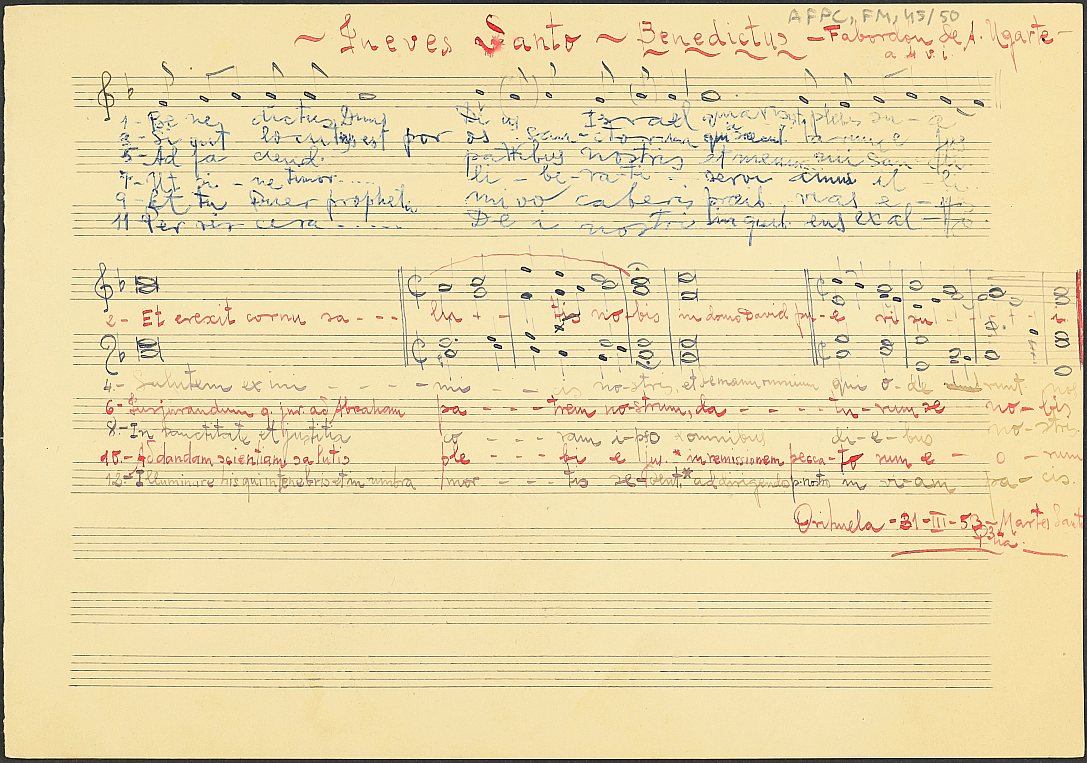 AFPC, FM, 45/50
~ Jueves Santo ~ Benedictus - Fabordon de A. Ugarte -
a 4 v. i.
1 - Be ne dictus Dnus De us Israel quia visit. plebis su - æ
3 - Si cut locutus est por os sanctorum qui a sæcul.
5 - Ad fa ciend. patribus nostris et memor
7 - Ut si - ne timor.... li - be - ra - ti - servi amus il - li
9 - Et tu puer propheta vias e -
11 Per vis cera ...... De i nostri in quib.
2 - Et erexit cornu sa - - - lu - t - tis no - bis in domo David pu - e ri su - i - t - i.
4. - Salutem ex ini - - - - mi - - - is no - stris, et de manu omnium qui o - de - runt nos
6 - Jusjurandum q. jur. ad Abraham pa - - - - trem no - strum, da - - - - tu - rum se no - bis
8. - In sanctitate et justitia co - - - ram i - pso * omnibus di - e - bus no - stris.
10. - Ad dandam scientiam salutis ple - - - bi e ijus * in remissionem pecca - to rum e - o - rum
12 - Illuminare his qui in tenebris et in umbra mor - - - tis se - dent * ad dirigendos p. nostr. in vi - am pa - cis.
Orihuela - 31 - III - 53 - Martes Sant